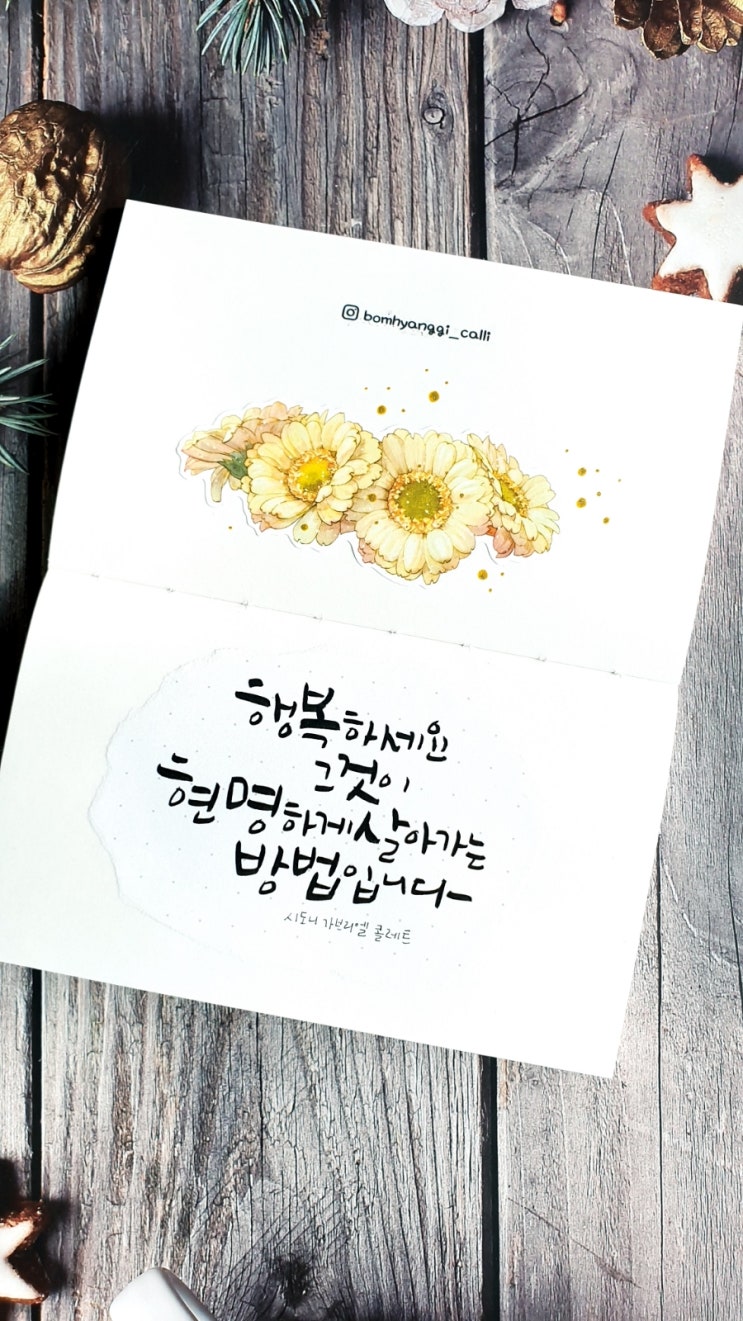 bomhyanggi_calli
행복하세요
그것이
현명하게살아가는
방법입니다-
시도니 가브리엘 콜레트